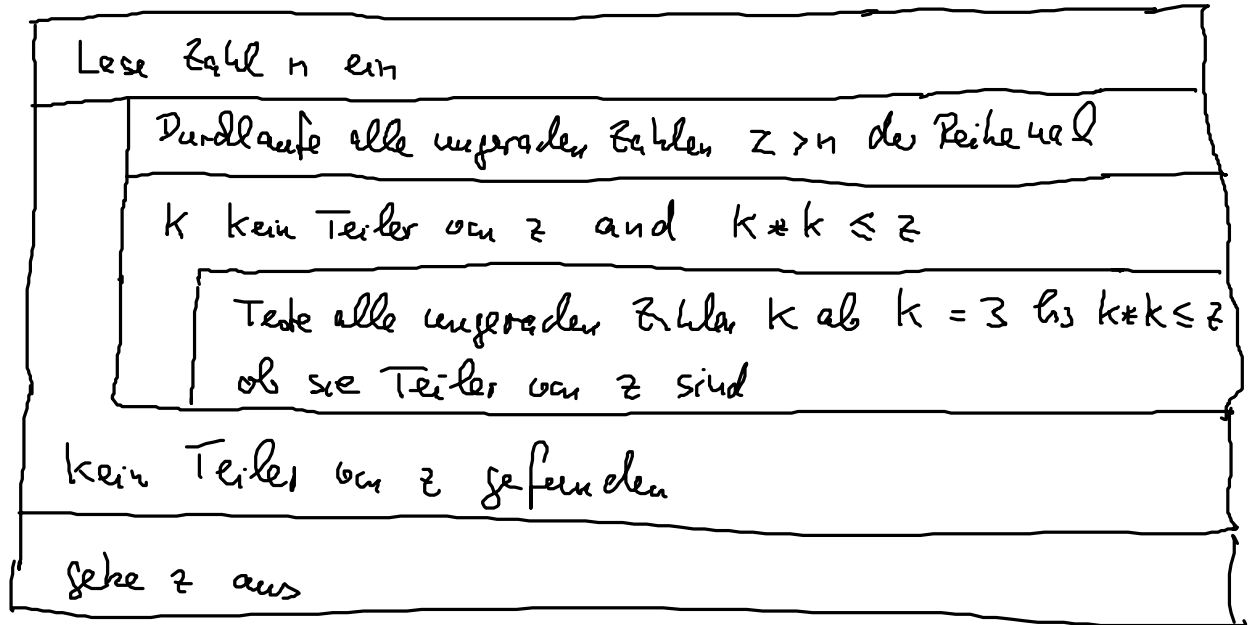 Lese Zahl n ein
Durchlaufe alle ungeraden Zahlen z > n der Reihe nach
K kein Teiler von z and K * k ≤ z
Teste alle ungeraden Zahlen K ab K = 3 bis k*k ≤ z
ob sie Teiler von z sind
kein Teiler von z gefunden
gebe z aus